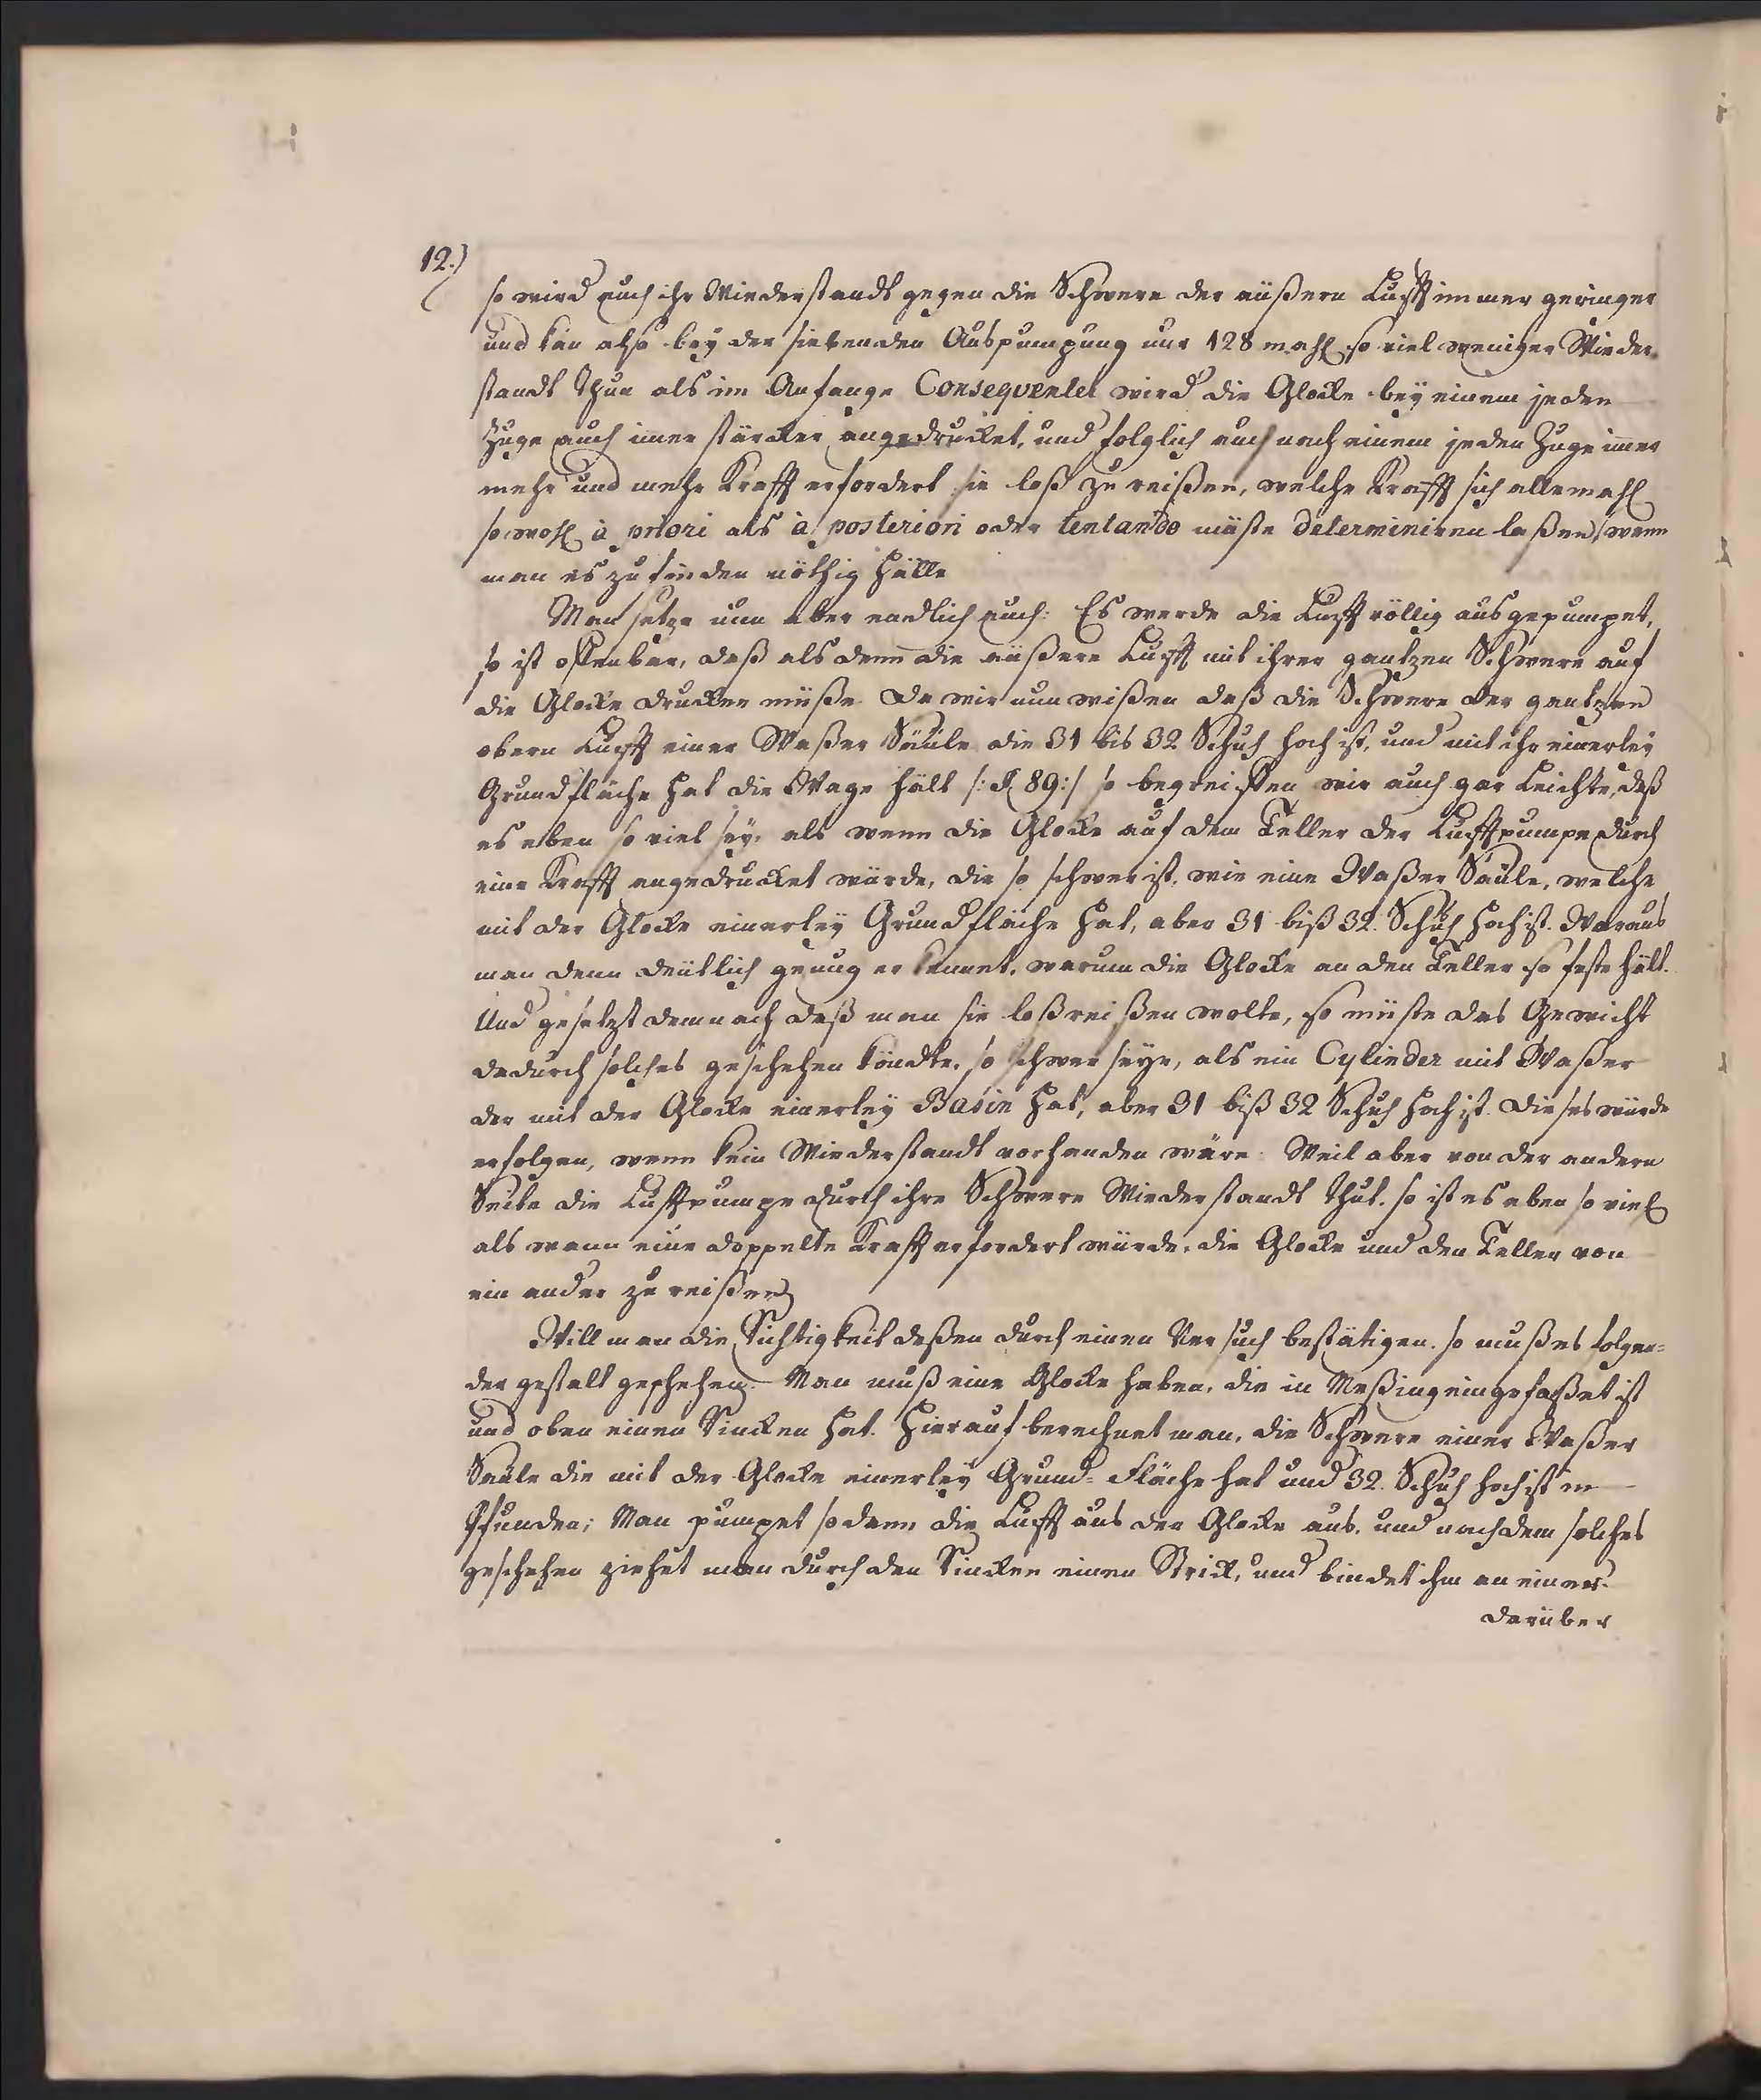 12.)
so wird auch ihr Wiederstandt gegen die Schwere der aüßern Lufft immer geringer
und kan also bey der siebenden Auspumpung nur 128 mahl so viel weniger Wieder-
standt thun als im Anfange Conseqventer wird die Glocke bey einem jeden
Zuge auch imer stärcker angedrucket, und folglich auch nach einem jeden Zuge imer
mehr und mehr Krafft erfordert sie loß zu reißen, welche Krafft sich allemahl
so wohl à priori als à posteriori oder tentando müste determiniren laßen, wenn
man es zu finden nöthig hätte
Man setze nun aber endlich auch: Es werde die Lufft völlig ausgepumpet,
so ist offenbar, daß als denn die aüßere Lufft mit ihrer gantzen Schwere auf
die Glocke drucken müße. Da wir nun wißen daß die Schwere der gantzen
obern Lufft einer Waßer Säule die 31 bis 32 Schuh hoch ist, und mit ihr einerley
Grundfläche hat die Wage hält /: § 89:/ so begreiffen wir auch gar Leichte, daß
es eben so viel sey, als wenn die Glocke auf dem Teller der Lufftpumpe durch
eine Krafft angedrucket würde, die so schwer ist, wie eine Waßer Säule, welche
mit der Glocke einerley Grundfläche hat, aber 31 biß 32. Schuh hoch ist. Woraus
man denn deütlich genug erkennet, warum die Glocke an den Teller so feste hält.
Und gesetzt demnach daß man sie loßreißen wolte, so müste das Gewicht
dadurch solches geschehen köndte, so schwer seye, als ein Cylinder mit Waßer
der mit der Glocke einerley Basin hat, aber 31 biß 32 Schuh hoch ist. Dieses würde
erfolgen, wenn kein Wiederstandt vorhanden wäre. Weil aber von der andern
Seite die Lufftpumpe durch ihre Schwere Wiederstandt thut. so ist es eben so viel
als wenn eine doppelte Krafft erfordert würde, die Glocke und den Teller von
ein ander zu reißen
Will man die Richtigkeit deßen durch einen Versuch bestätigen. so muß es folgen=
der gestalt geschehen. Man muß eine Glocke haben, die in Meßing eingefaßet ist
und oben einen Rincken hat. Hierauf berechnet man, die Schwere einer Waßer
Säule die mit der Glocke einerley Grund= Fläche hat und 32. Schuh hoch ist in
Pfunden; Man pumpet sodann die Lufft aus der Glocke aus, und nachdem solches
geschehen ziehet man durch den Rincken einen Strick, und bindet ihm an einer
darüber